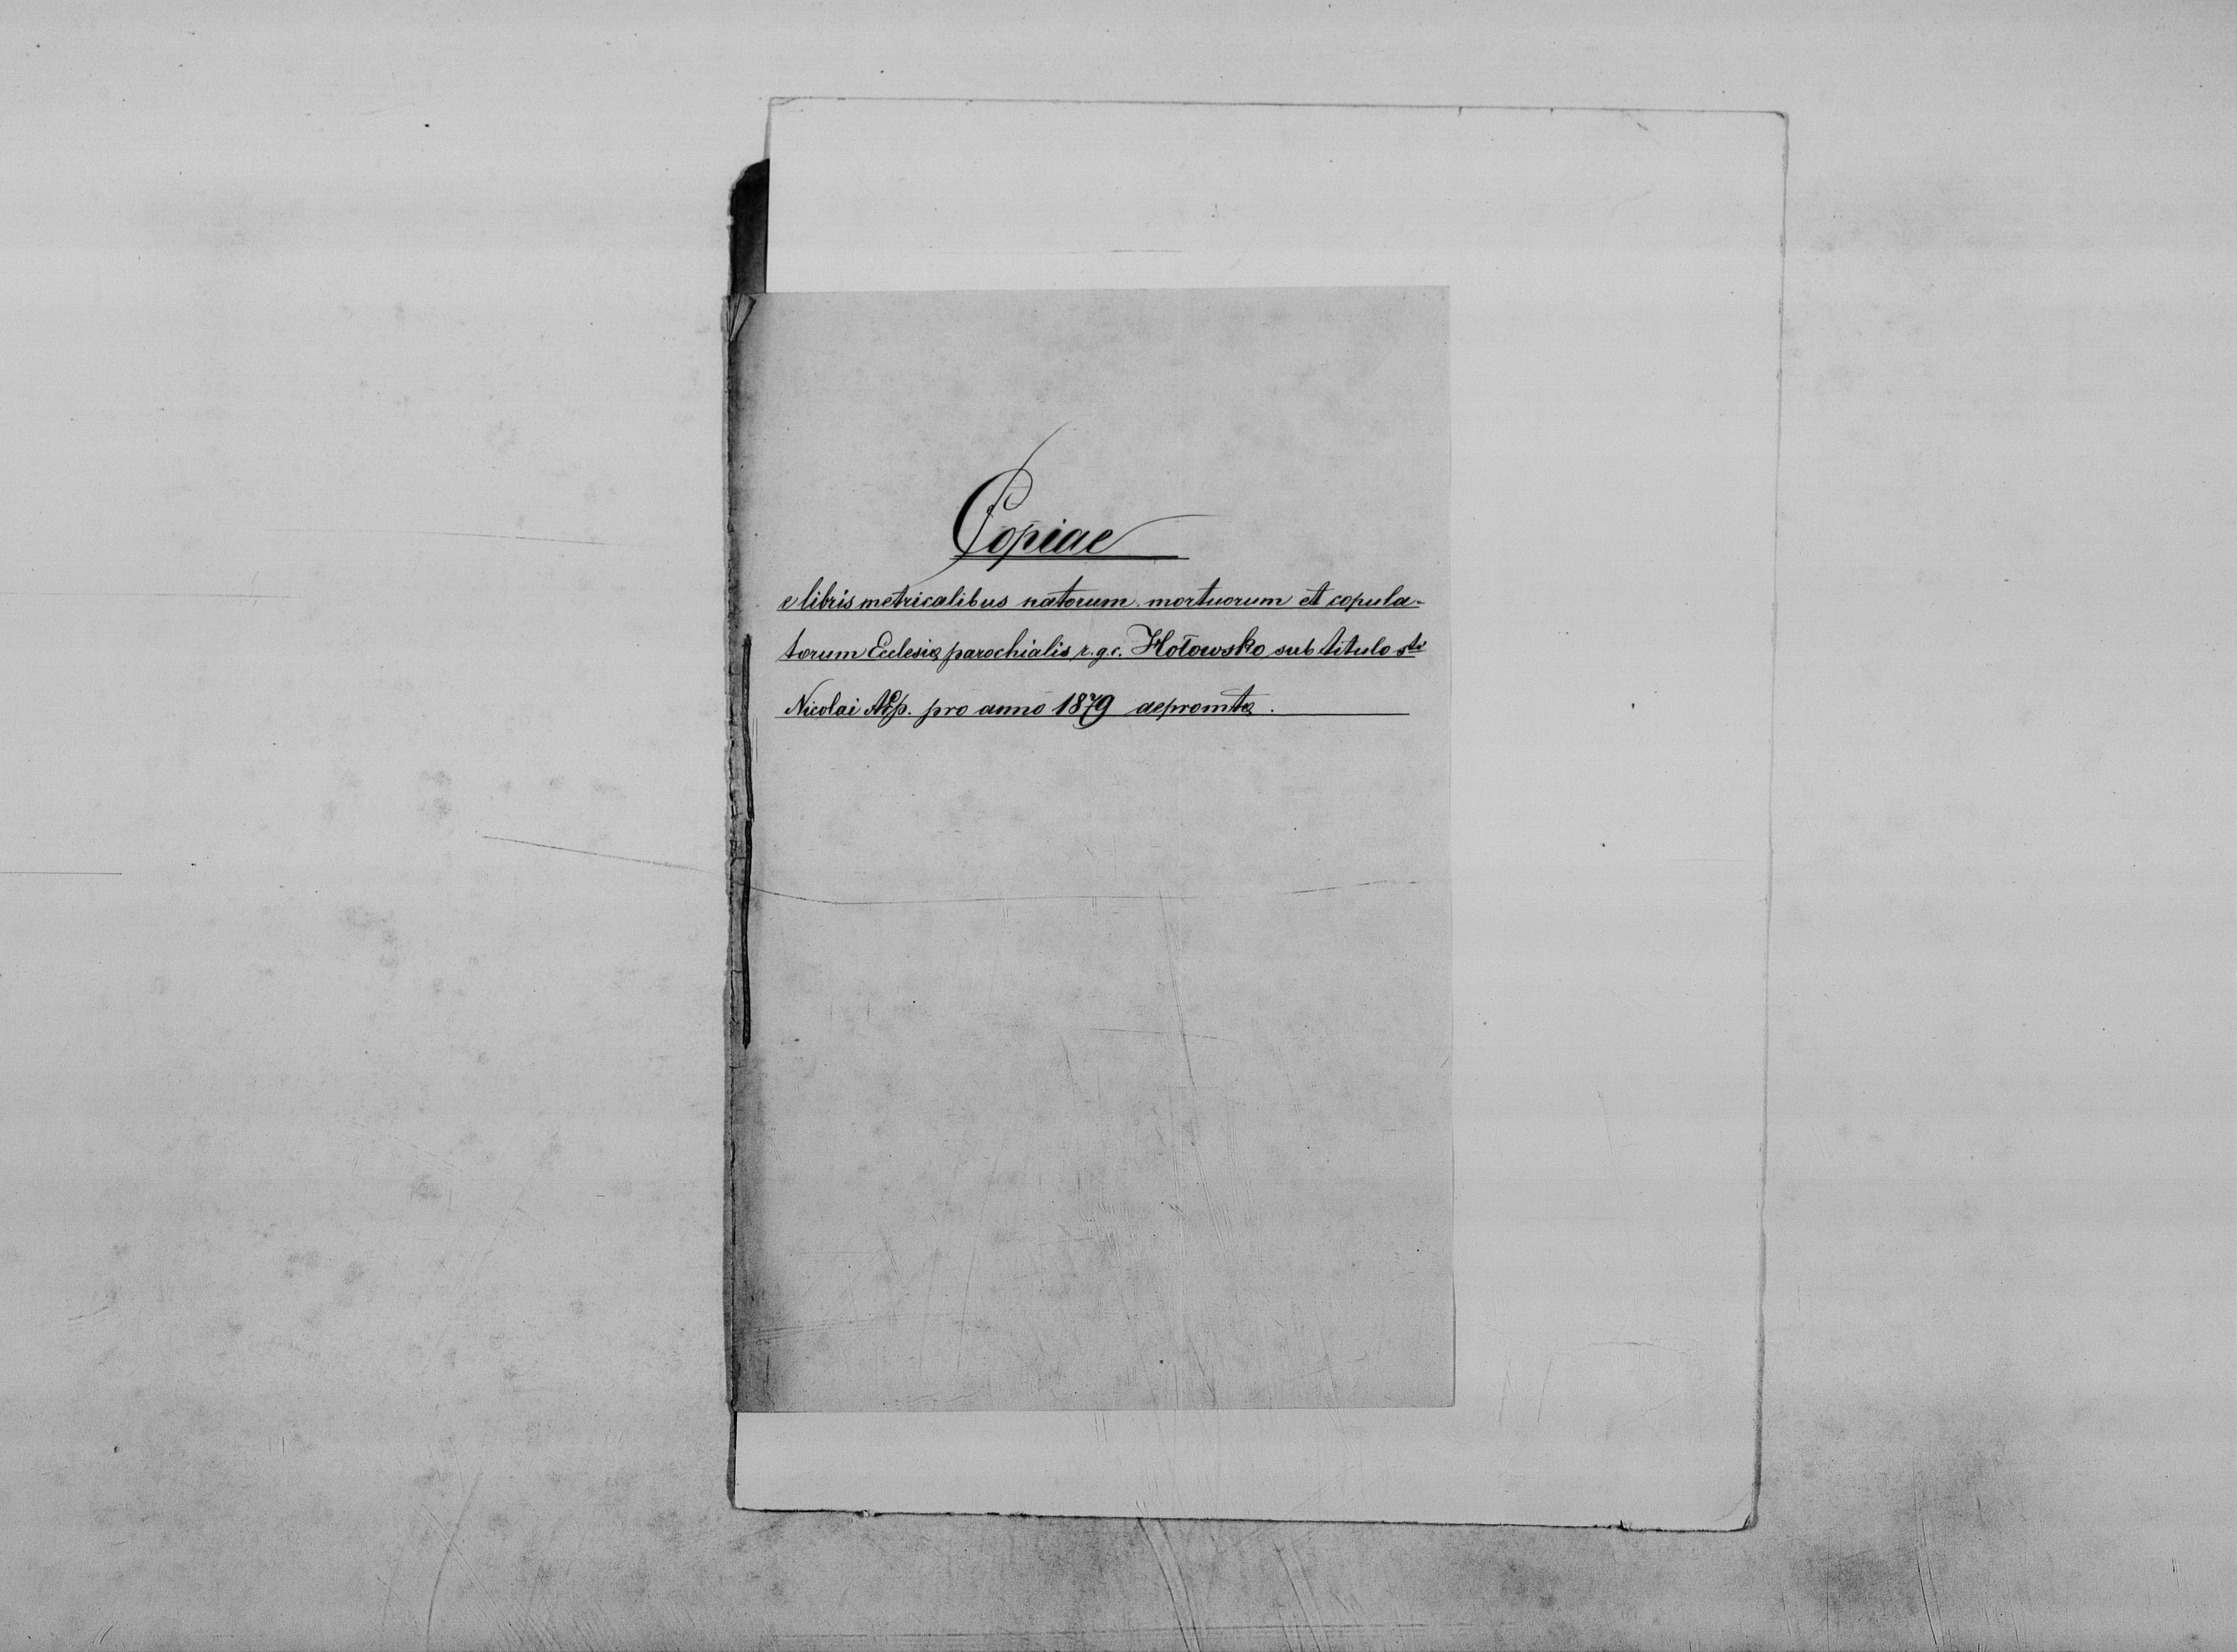 Copiae
e libris metricalibus natorum, mortuorum et copula-
torum Ecclesię parochialis r. g. c. Hołowsko sub titulo sti
Nicolai AEp. pro anno 1879 depromtę.